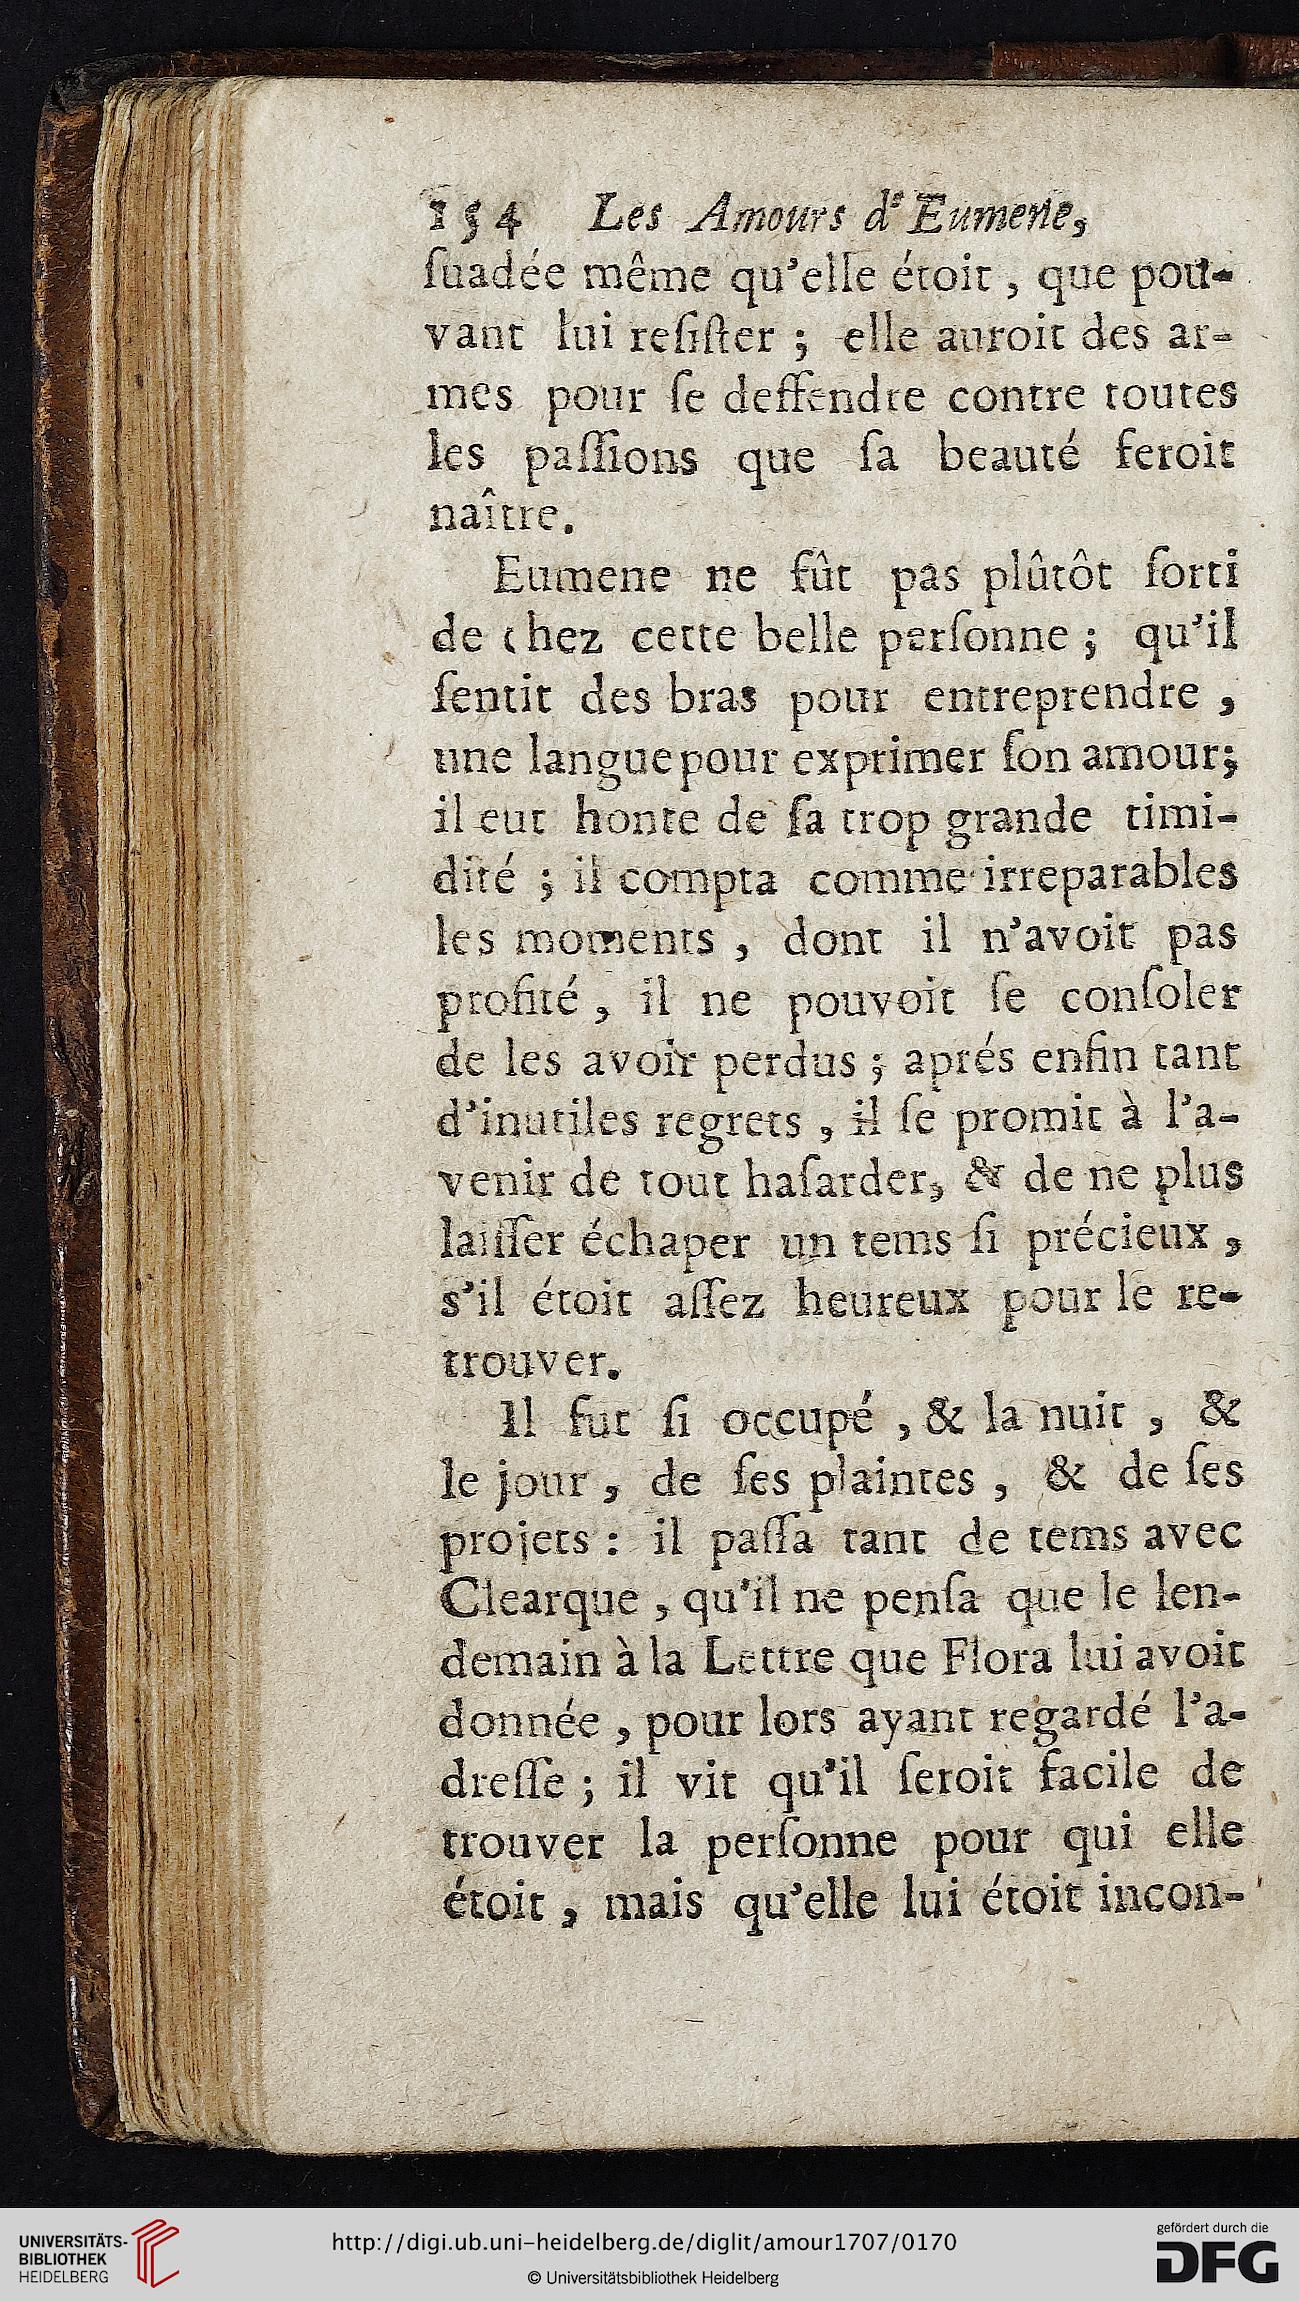 154 Les Amours d'Eumene,
ſuadée même qu'elle étoit, que pou-
vant lui reſiſter; elle auroit des ar-
mes pour ſe deffendre contre toutes
les paſſions que ſa beauté feroit
naître.
Eumene ne fût pas plûtôt ſorti
de chez cette belle perſonne; qu'il
ſentit des bras pour entreprendre,
une langue pour exprimer ſon amour;
il eut honte de ſa trop grande timi-
dité; il compta comme irreparables
les moments, dont il n'avoit pas
profité, il ne pouvoit ſe conſoler
de les avoir perdus; aprés enfin tant
d'inutiles regrets, il ſe promit à l'a-
venir de tout haſarder, & de ne plus
laiſſer échaper un tems ſi précieux,
s'il étoit aſſez heureux pour le re-
trouver.
Il fut ſi occupé, & la nuit, &
le jour, de ſes plaintes, & de ſes
projets: il paſſa tant de tems avec
Clearque, qu'il ne penſa que le len-
demain à la Lettre que Flora lui avoit
donnée, pour lors ayant regardé l'a-
dreſſe; il vit qu'il ſeroit facile de
trouver la perſonne pour qui elle
étoit, mais qu'elle lui étoit incon-
UNIVERSITÄTS-
BIBLIOTHEK
HEIDELBERG
http://digi.ub.uni-heidelberg.de/diglit/amour1707/0170
© Universitätsbibliothek Heidelberg
gefördert durch die
DFG